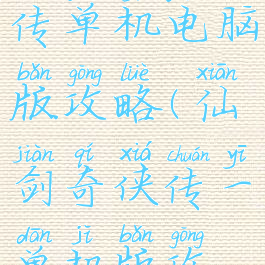 传单机电脑
bǎn gōng lüè xiān
版攻略(仙
jiàn qí xiá chuán yī
剑奇侠传一
dān jī bǎn gōng
单机版攻